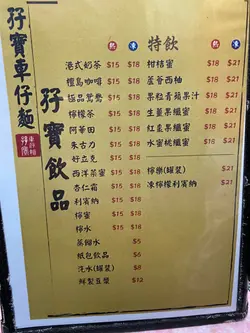 孖寶車仔麵
孖寶飲品
熱 凍
港式奶茶 $15 $18
檀島咖啡 $15 $18
極品鴛鴦 $15 $18
檸檬茶 $15 $18
阿華田 $15 $18
朱古力 $15 $18
好立克 $15 $18
西洋菜蜜 $15 $18
杏仁霜 $15 $18
利賓納 $15 $18
檸蜜 $15 $18
檸水 $15 $18
蒸餾水 $5
紙包飲品 $6
汽水(罐裝) $8
鮮製豆漿 $12
特飲
熱 凍
柑桔蜜 $18 $21
蘆薈西柚 $18 $21
果粒青蘋果汁 $18 $21
生薑果纖蜜 $18 $21
紅棗果纖蜜 $18 $21
水蜜桃纖蜜 $18 $21
檸樂(罐裝) $21
凍檸檬利賓納 $21